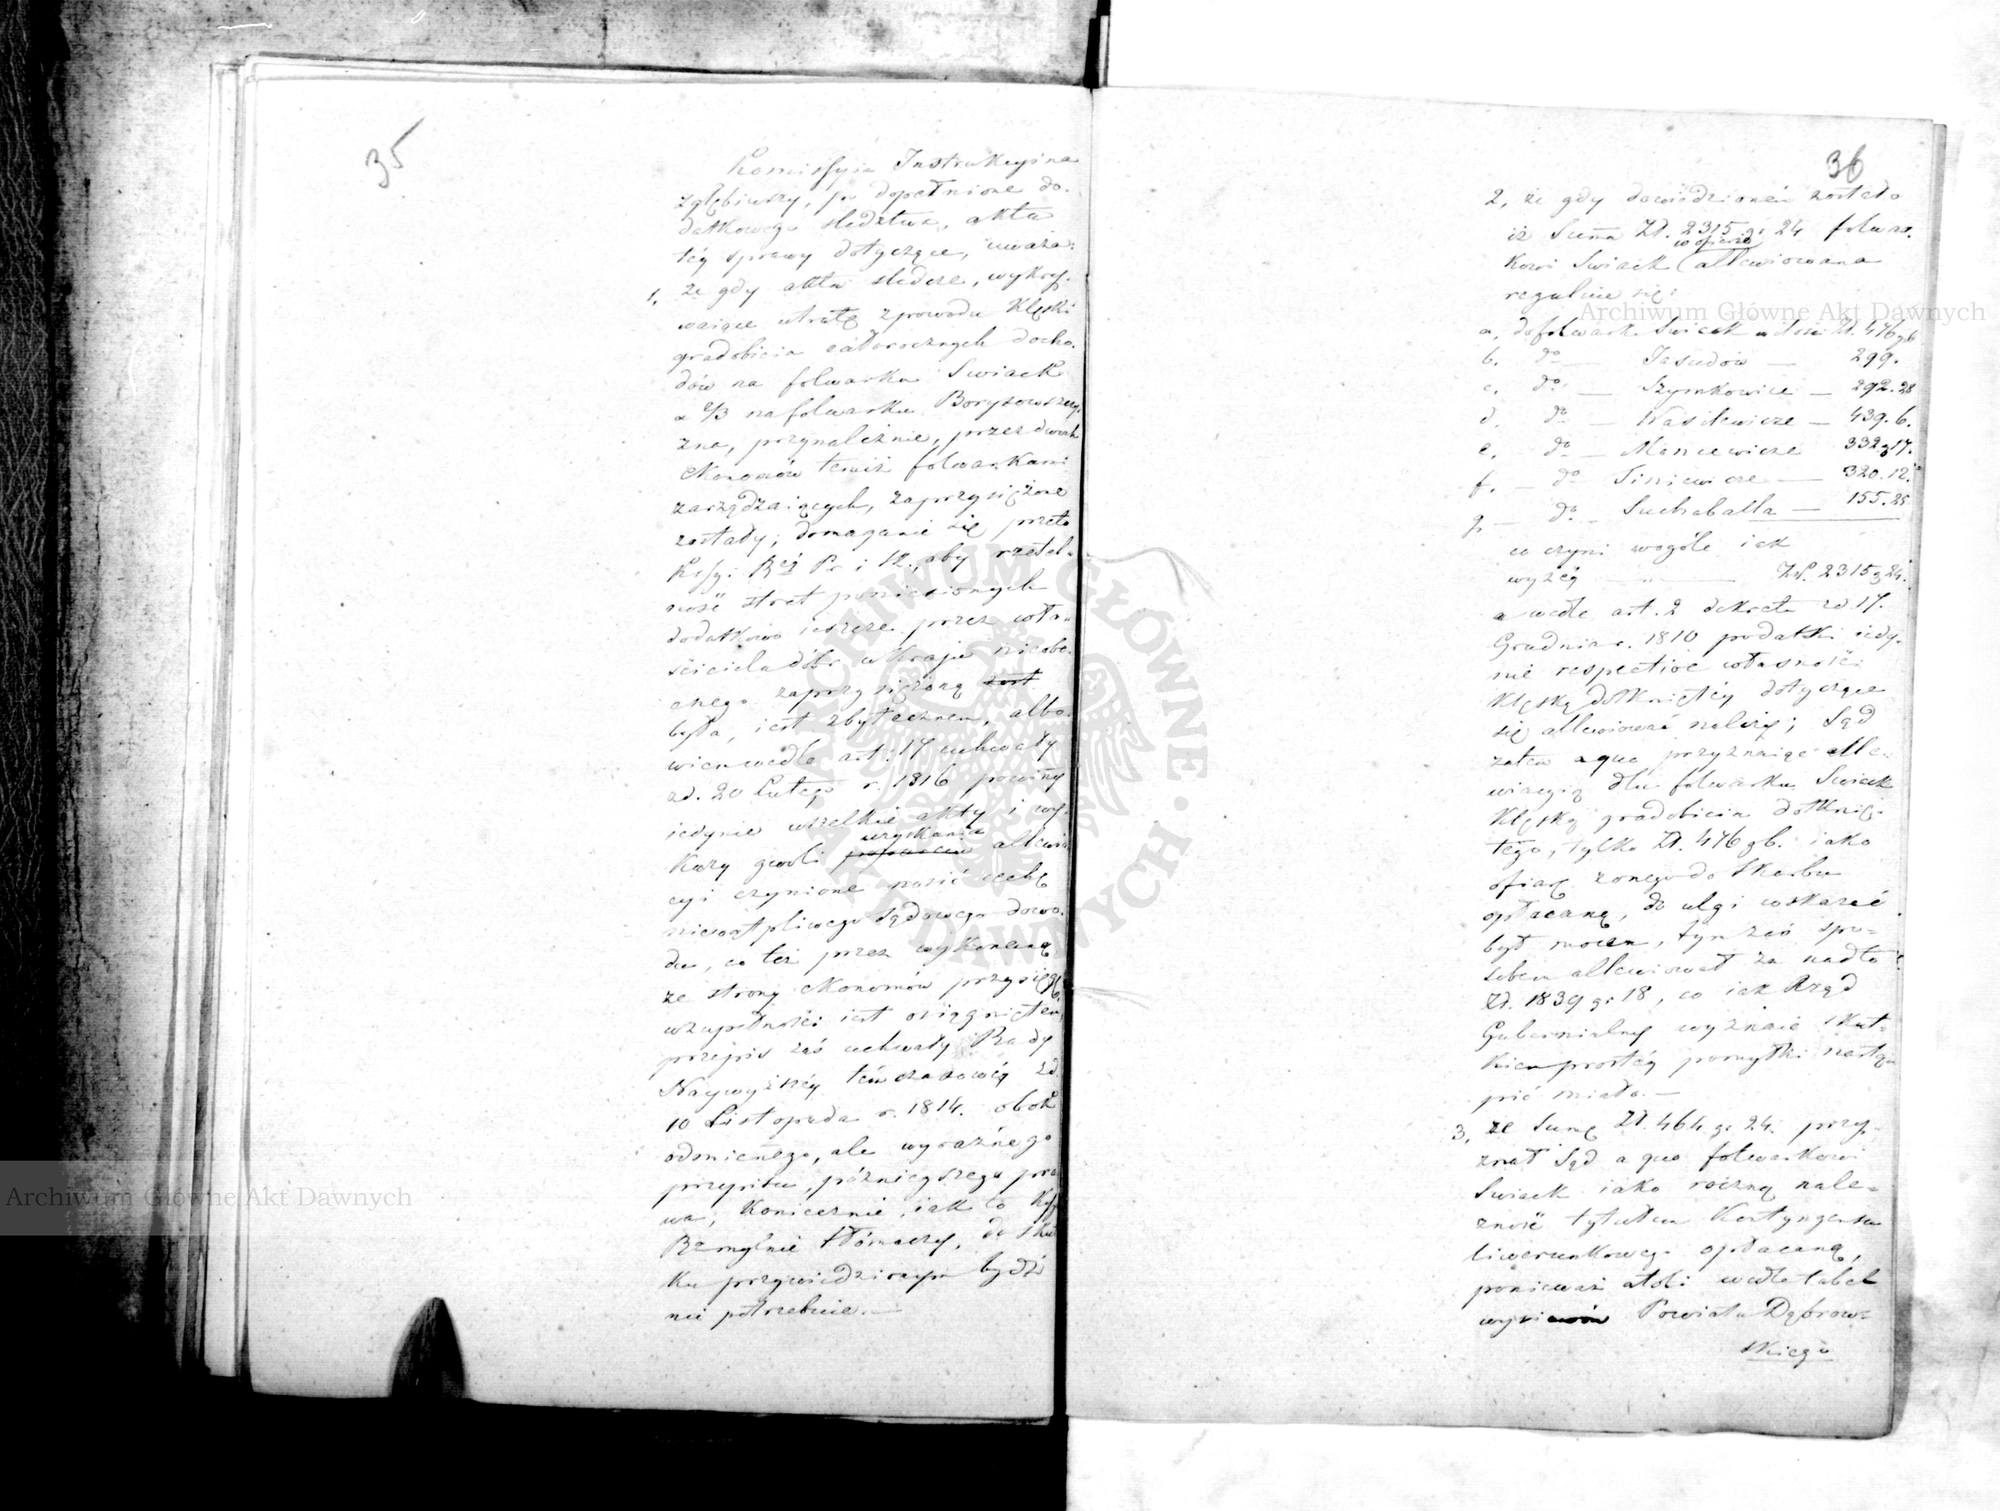 35
Komissyia Instrukcyina
zgłębiwszy, po dopełnione do-
datkowego śledztwa, akta
téy sprawy dotyczące, uważa:
1, że gdy akta śledcze, wykry-
waiące utratę z powodu klęski
gradobicia całorocznych docho-
dów na folwarku Swiack
a 2/3 na folwarku Borysowszczy-
zna, przynależnie, przez dwóch
ekonomów temiż folwarkami
zarządzaiących, zaprzysiężone
zostały, domaganie się przeto
Kssyi Réy P. i S., aby rzetel-
ność strat poniesionych
dodatkowo ieszcze przez wła-
ściciela dóbr w kraju nieobe-
cnego zaprzysiężoną zost
była, iest zbyteczném, albo-
wiem wedle art. 17 uchwały
zd. 20 Lutego r. 1816 powinny
iedynie wszelkie akty i wy-
uzyskania
kazy gwoli allewia-
cyi czynione nosić cechę
niewątpliwego sądowego dowo-
du, co też przez wykonaną
ze strony ekonomów przysięgę
w zupełności iest osiągnietem,
przepis zaś uchwały Rady
Naywyższéy tymczasowéy zd.
10 Listopada r. 1814. obok
odmiennego, ale wyraźnego
przepisu, późnieyszego pra-
wa, koniecznie, iak to Kss
Rz mylnie tłómaczy, do skut-
ku przywiedzionym bydź
nie potrzebuie. —
36
2, że gdy dowiedzionem zostało
iż Summa Zł. 2315 gr 24 folwar-
w ofierze
kowi Swiack allewiowana
reguluie się:
a, do folwarku Swiack w ilości Zł. 476 g 6
b. do — Jasudów — 299.
c. do — Szymkowice — 292. 28
d. do — Wasilewicze — 439. 6.
e. do — Mancewicze 332 g 17.
f. — do Siniewicze — 320. 12.
g — do Suchabałka — 155. 25
co czyni wogóle iak
wyżéy — „ — Zł. 2315 g 24.
a wedle art. 2 dekretu zd 17.
Grudnia r. 1810 podatki iedy-
nie respective własności
klęską dotkniętéy dotyczące
się allewiować należy; Sąd
zatem a quo przyznaiąc alle-
wiacyią dla folwarku Swiack
klęską gradobicia dotknię-
tego, tylko Zł. 476 g 6. iako
ofiarę z onego do Skarbu
opłacaną, do ulgi wskazać
był mocen, tym zaś spo-
sobem allewiował za nadto
Zł. 1839 gr 18, co iak Rząd
Gubernialny wyznaie skut-
kiem prostéy pomyłki nastą-
pić miało. —
3, że Summę Zł. 464 gr 24. przy-
znał Sąd a quo folwarkowi
Swiack iako roczną nale-
żność tytułem Kontyngensu
liwerunkowego opłacaną,
ponieważ atoli wedle tabel
wysiewów Powiatu Dąbrow-
skiego
Archiwum Główne Akt Dawnych
Archiwum Główne Akt Dawnych
ARCHIWUM GŁÓWNE AKT DAWNYCH